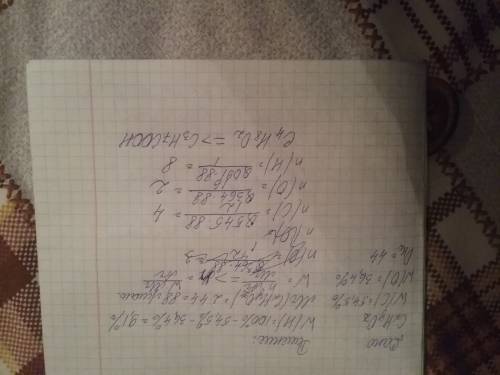 Дано:
CxHyOz
W(C)=54,5%
W(O)=36,4%
D_H₂=44
Решение:
W(H)=100%-54,5%-36,4%=9,1%
M(CxHyOz)=2·44=88 г/моль
n(C)=0,545·88/12=4
n(O)=0,364·88/16=2
n(H)=0,091·88/1=8
C₄H₈O₂ => C₃H₇COOH